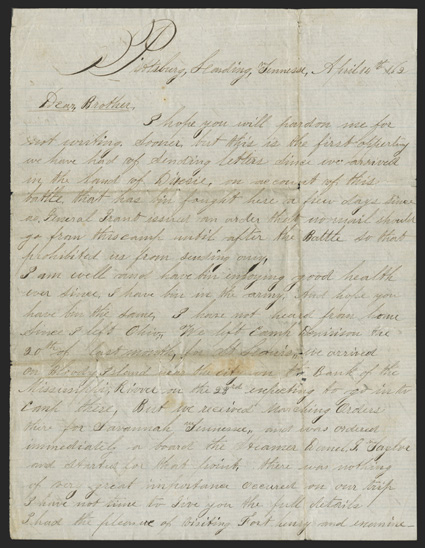 Pittsburg, Landing, Tennessee, April 10th /62
Dear, Brother.
I hope you will pardon me for
not writing. sooner but this is the first
we have had of sending letters since we arrived
in the land of on account of this
battle that has fought here a few days since
as. General Grant issued an order that no mail should
go from this camp until after the Battle so that
prohibited us from sending any,
I am well and have bin enjoying good health
ever since, I have bin in the army. And hope you
have bin the same, I have not heard from home
since I left Ohio, We left Camp the
20th of last month, for St. Louis we arrived
on Bloody Island near the on the Bank of the
River on the 23rd expecting to go in to
Camp there, But we received Marching Orders
there for Savannah Tennessee, and was ordered
immediately a board the Steamer G. Taylor
and started for that point. there was nothing
of very great importance occured on our trip
I have not time to give you the full details
I had the pleasure of visiting Fort Henry and